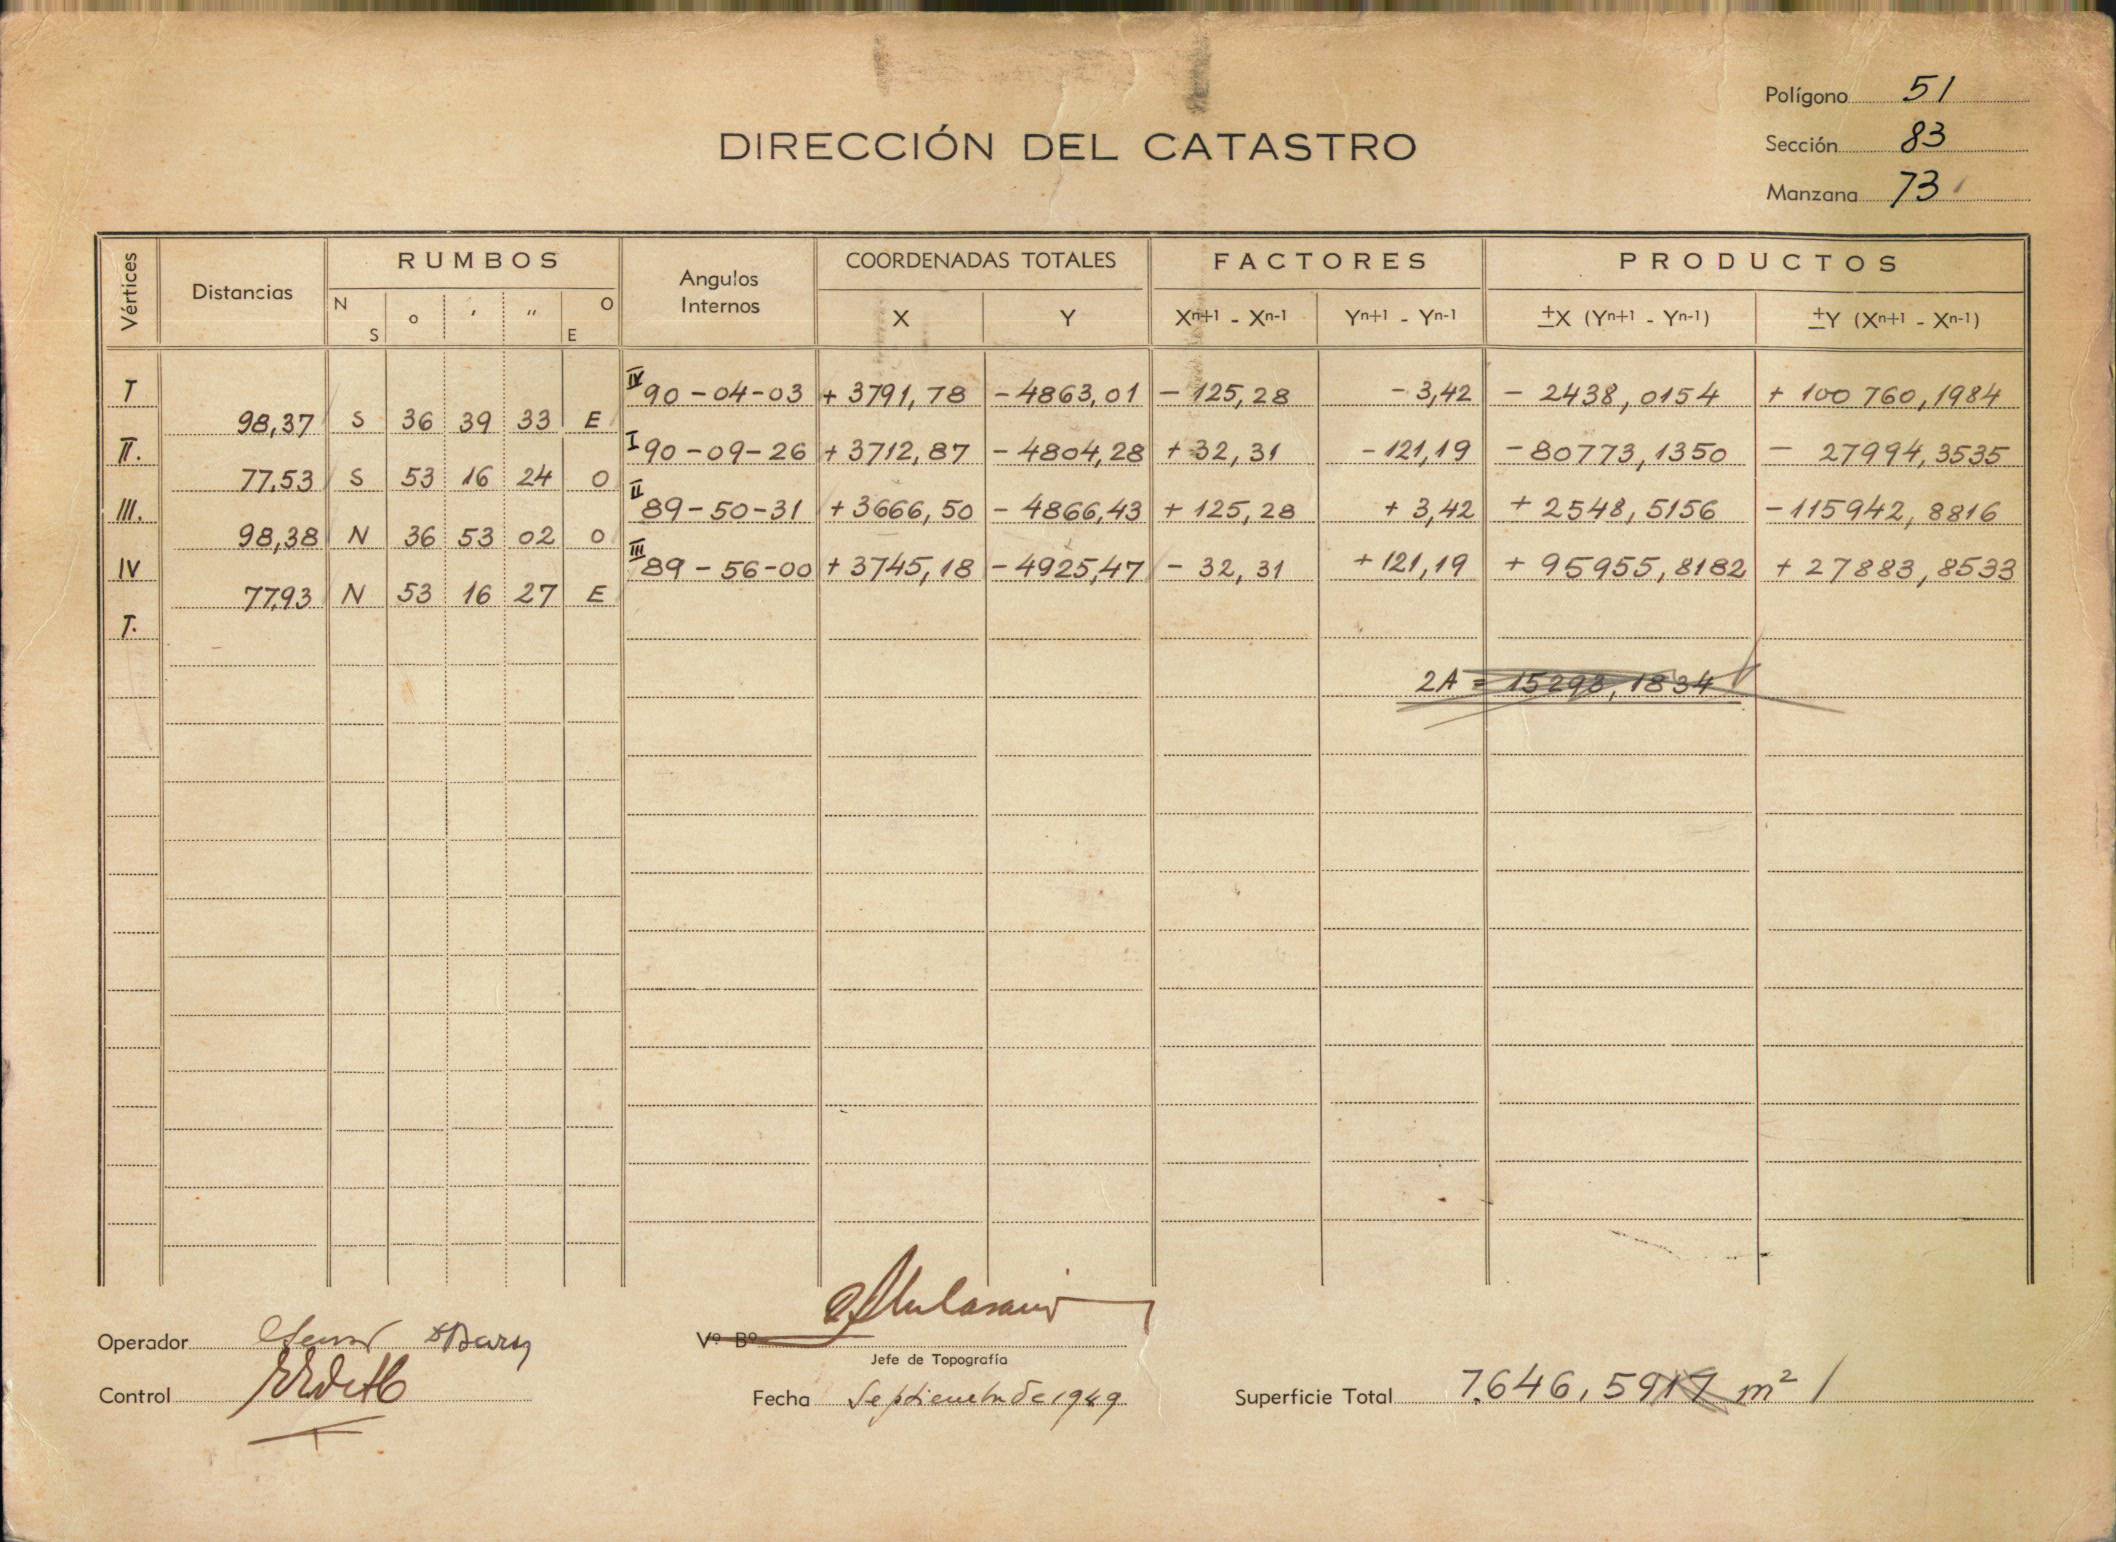 Polígono 51
DIRECCIÓN DEL CATASTRO
Sección 83
Manzana 73
Vértices Distancias RUMBOS Angulos Internos COORDENADAS TOTALES FACTORES PRODUCTOS
N S o ' '' O E X Y Xn+1 - Xn-1 Yn+1 - Yn-1 ±X (Yn+1 - Yn-1) ±Y (Xn+1 - Xn-1)
I IV 90-04-03 +3791,78 -4863,01 -125,28 -3,42 -2438,0154 +100760,1984
98,37 S 36 39 33 E
II. I 90-09-26 +3712,87 -4804,28 +32,31 -121,19 -80773,1350 -27994,3535
77,53 S 53 16 24 O
III. II 89-50-31 +3666,50 -4866,43 +125,28 +3,42 +2548,5156 -115942,8816
98,38 N 36 53 02 O
IV III 89-56-00 +3745,18 -4925,47 -32,31 +121,19 +95955,8182 +27883,8533
77,93 N 53 16 27 E
I.
2A = 15293,1834
Operador
Vº Bº
Jefe de Topografía
Control
Fecha Septiembre de 1949
Superficie Total 7.646,5917 m²